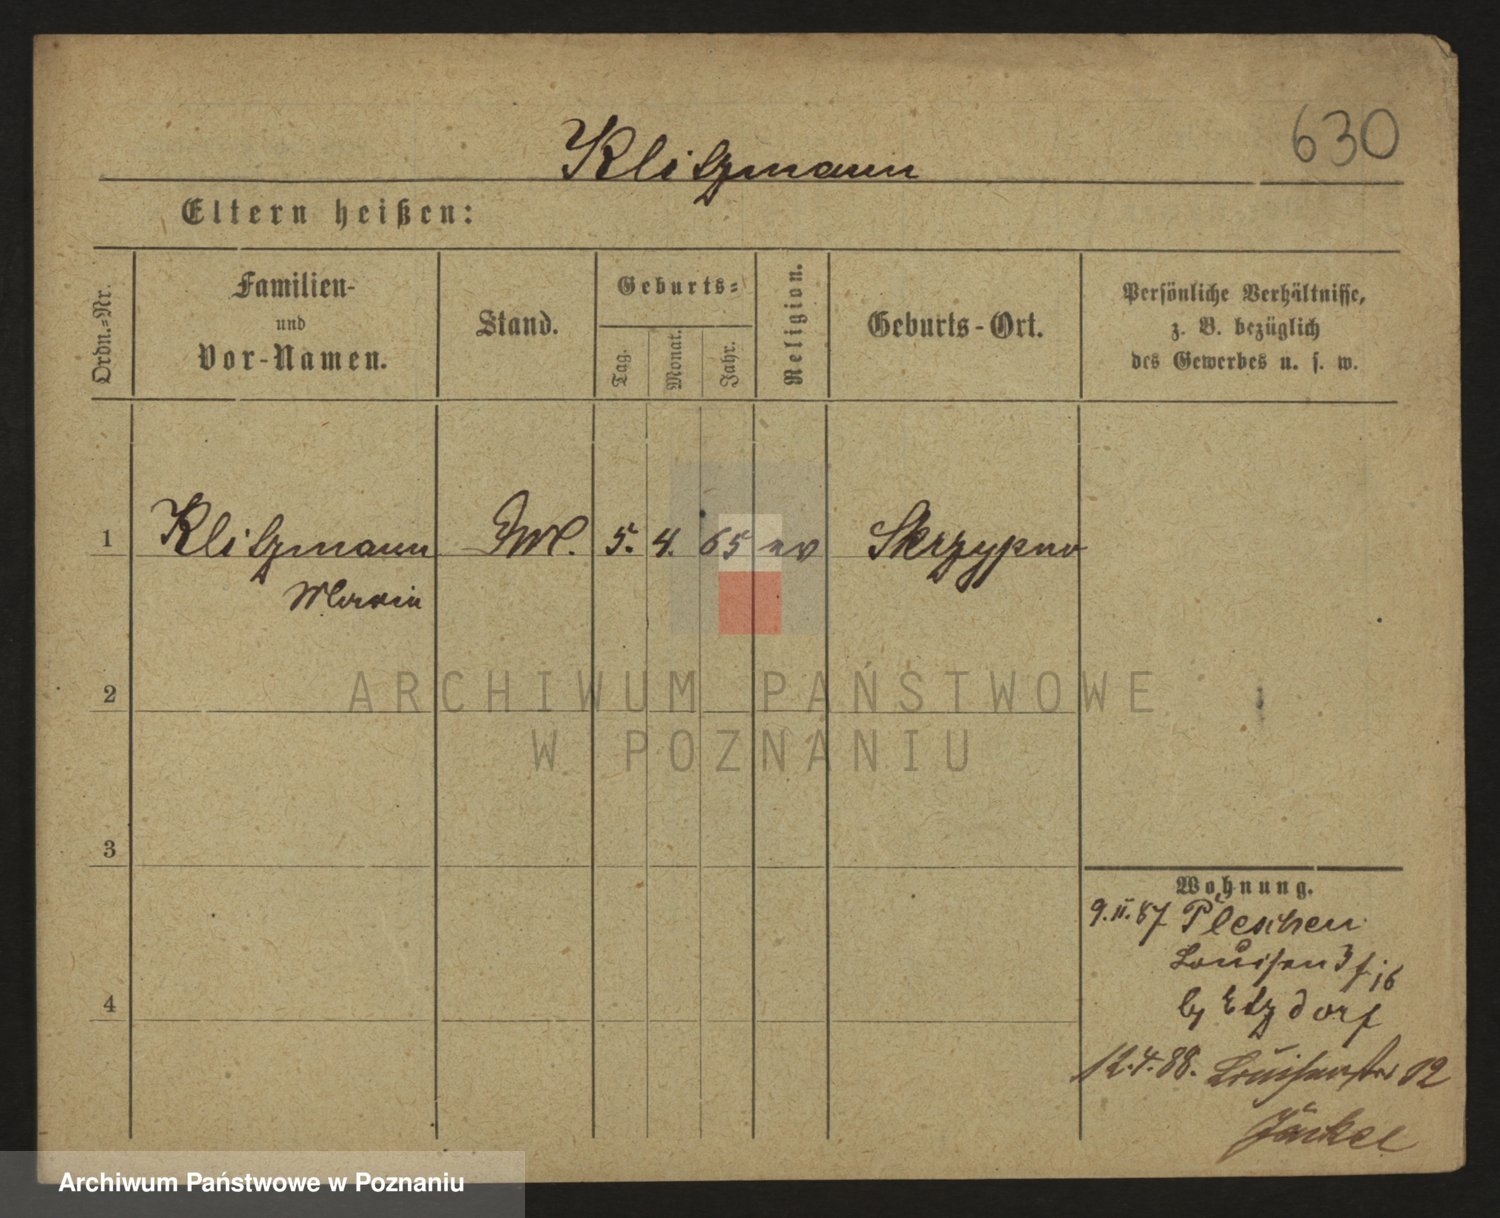 630
Klitzmann
Eltern heißen:
Ordn.=Nr.
Familien-
und
Vor-Namen.
Stand.
Geburts=
Tag.
Monat.
Jahr.
Religion.
Geburts-Ort.
Persönliche Verhältnisse,
z. B. bezüglich
des Gewerbes u. s. w.
1 Klitzmann 5. 4. 65 ev Skrzypno
Marie
2
3
4
ARCHIWUM PAŃSTWOWE
W POZNANIU
Wohnung.
9.11.87 Pleschen
Louisen
by Etzdorf
12.4.88. Louisenstr 12
Jäckel
Archiwum Państwowe w Poznaniu